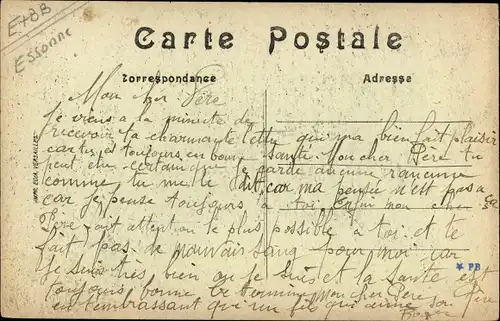 E&B
Essonne
Carte Postale
Correspondance
Adresse
Mon cher Père
Je viens a la minute de
recevoir ta charmante lettre qui ma bien fait plaisir
car tu es toujours en bonne santé. Mon cher Père tu
peut être certain que je garde aucune rancune
comme tu me le dit, car ma pensée n'est pas a ça
car je pense toujours a toi. Enfin mon cher
Père fait attention le plus possible a toi et te
fait pas de mauvais sang pour moi car
je suis très bien ou je suis et la santé est
toujours bonne. Je termine Mon cher Père
en t'embrassant qu'un fils qui aime son Père
Roger
IMPR. EDIA VERSAILLES
* PB